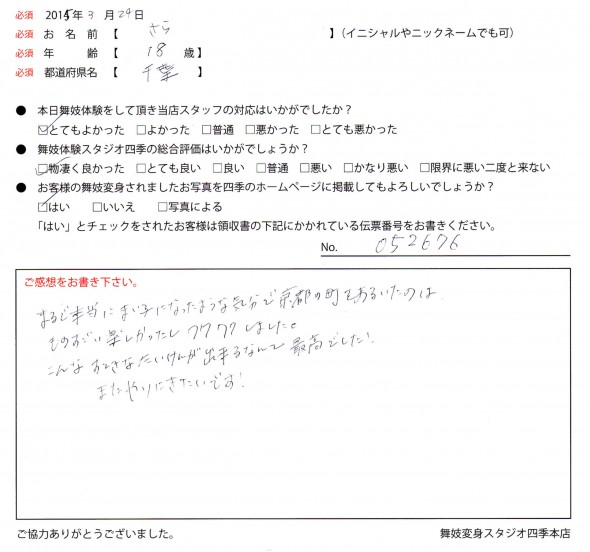 必須 2015年 3 月 24日
必須 お 名 前 【 さら 】(イニシャルやニックネームでも可)
必須 年 齢 【 18 歳】
必須 都道府県名 【 千葉 】
● 本日舞妓体験をして頂き当店スタッフの対応はいかがでしたか？
☑とてもよかった □よかった □普通 □悪かった □とても悪かった
● 舞妓体験スタジオ四季の総合評価はいかがでしょうか？
☑物凄く良かった □とても良い □良い □普通 □悪い □かなり悪い □限界に悪い二度と来ない
● お客様の舞妓変身されましたお写真を四季のホームページに掲載してもよろしいでしょうか？
☑はい □いいえ □写真による
「はい」とチェックをされたお客様は領収書の下記にかかれている伝票番号をお書きください。
No. 052676
ご感想をお書き下さい。
まるで本当にまい子になったような気分で京都の町をあるいたのは
ものすごい楽しかったし ワクワクしました。
こんなすてきなたいけんが出来るなんて 最高でした!
またやりにきたいです!
ご協力ありがとうございました。 舞妓変身スタジオ四季本店